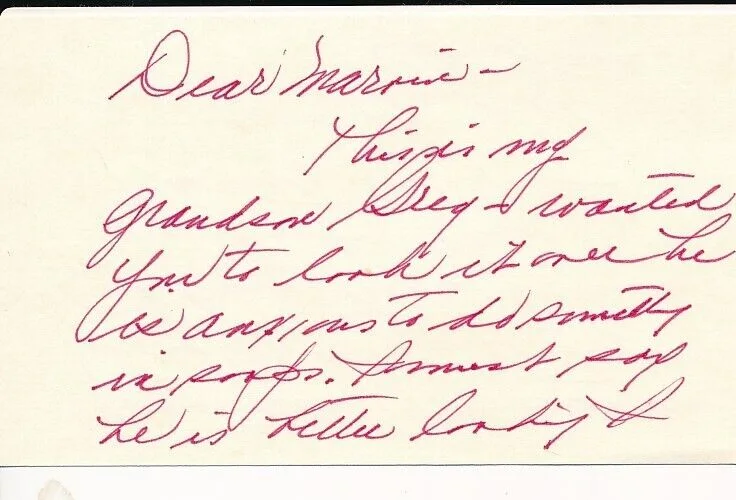 Dear Marvin -
This is my
grandson Greg - wanted
you to look it over he
is anxious to do something
in soaps. I must say
he is better looking &